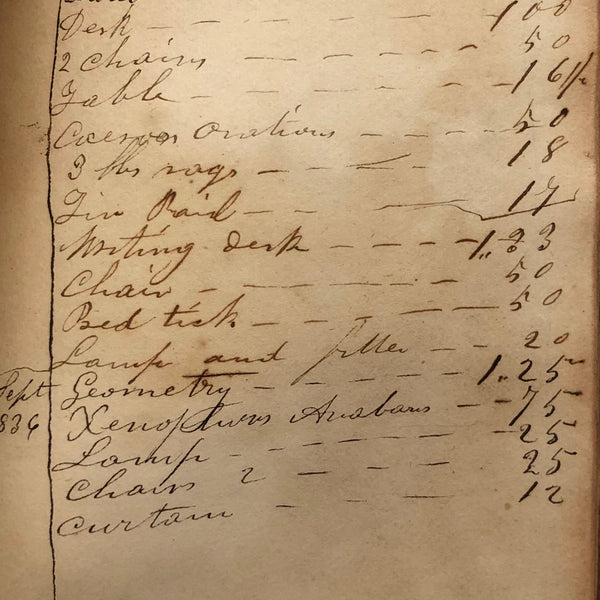 Desk — — — — 1 00
2 Chairs — — — — 50
Table — — — — 16
Ciceros Orations — — — 50
3 lbs rags — — — 18
Tin Paid — — 17
Writing desk — — — 1.. 33
Chair — — — — 50
Bed tick — — — — 50
Lamp and filler — — 20
Sept Geometry — — — — 1.. 25
836 Xenophons Anabasis — 75
Lamp — — — — 25
Chairs 2 — — — 25
Curtain — — — 12